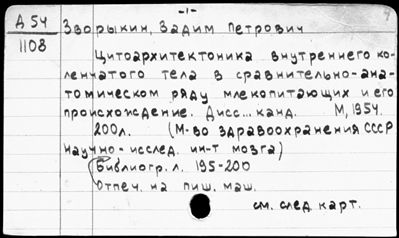 -1-
Д 54
1108
Зворыкин, Вадим Петрович
Цитоархитектоника внутреннего ко-
ленчатого тела в сравнительно-ана-
томическом ряду млекопитающих и его
происхождение. Дисс... канд. М, 1954.
200л. (М-во здравоохранения СССР
Научно-исслед. ин-т мозга)
Библиогр. л. 195-200
Отпеч. на пиш. маш.
см. след. карт.